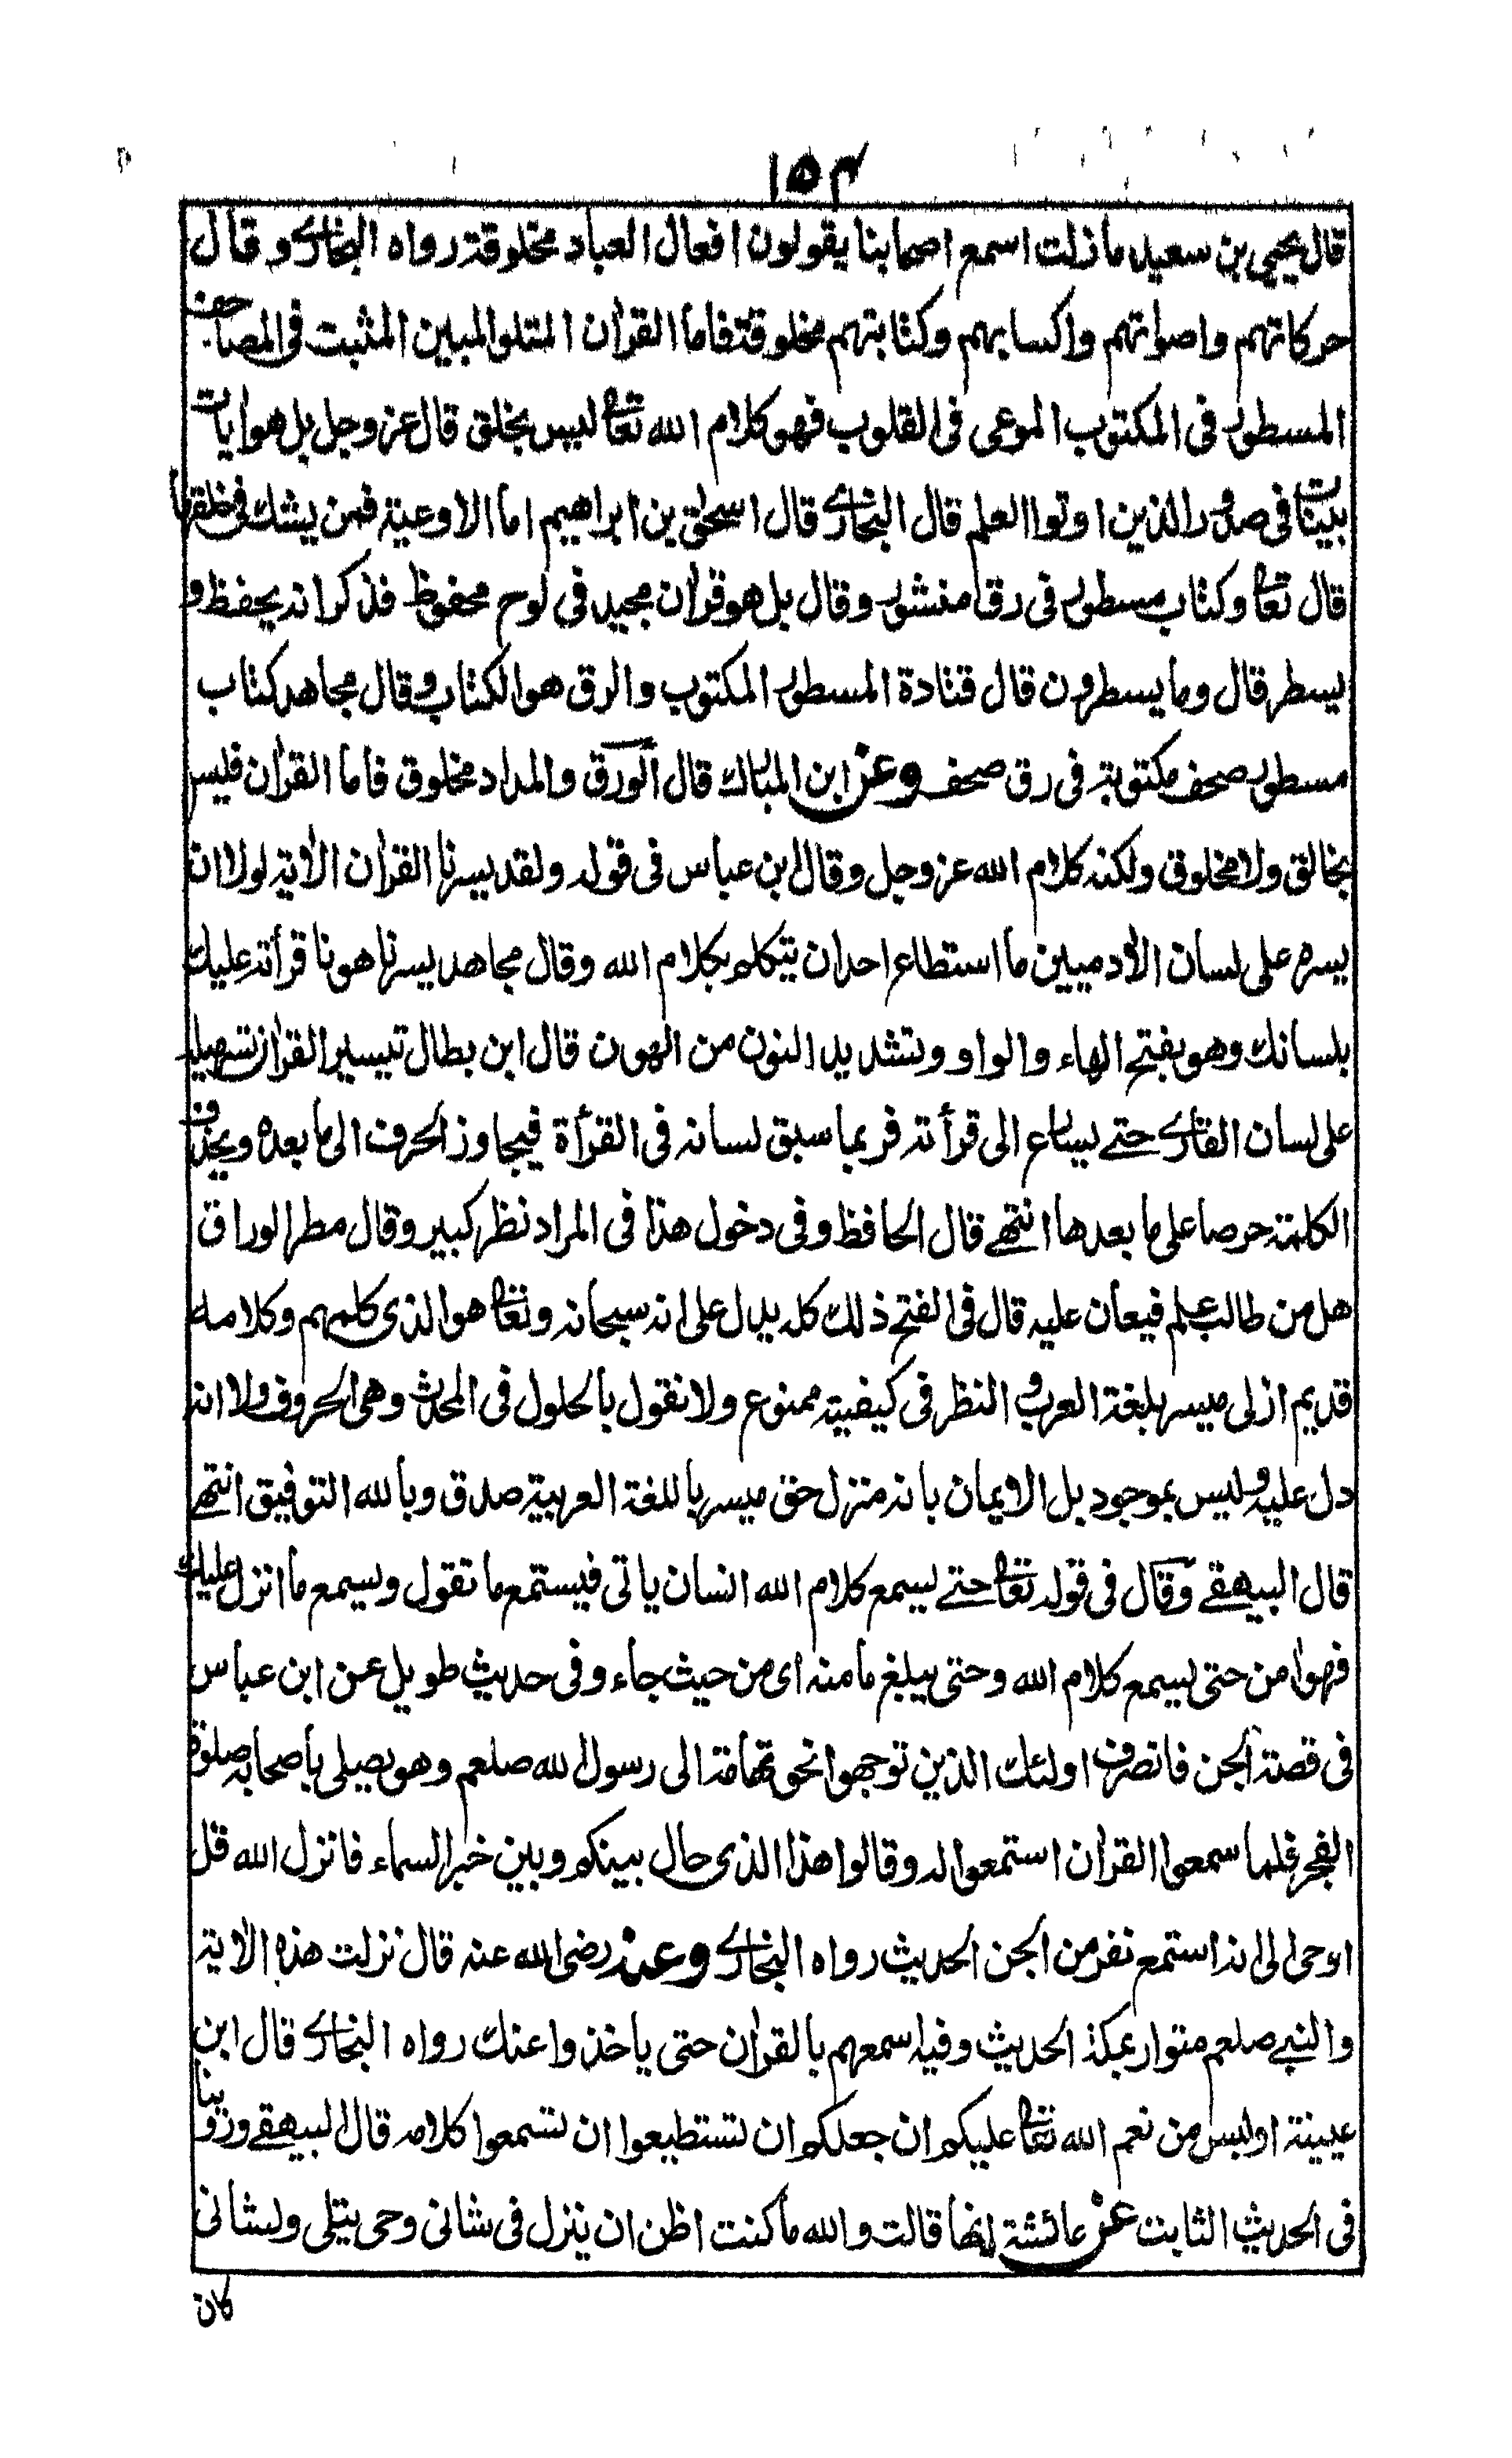 ١٥٣
قال يحيى بن سعيد ما زلت اسمع اصحابنا يقولون افعال العباد مخلوقة رواه البخاري وقال
حركاتهم واصواتهم واكسابهم وكتابتهم مخلوقة فاما القرآن المتلو المبين المثبت في المصاحف
المسطور في المكتوب الموعى في القلوب فهو كلام الله تعا ليس بخلق قال عز وجل بل هو آيات
بينات في صدور الذين اوتوا العلم قال البخاري قال اسحق بن ابراهيم اما الاوعية فمن يشك في خلقها
قال تعا وكتاب مسطور في رق منشور وقال بل هو قرآن مجيد في لوح محفوظ فذكر انه يحفظ و
يسطر قال وما يسطرون قال قتادة المسطور المكتوب والرق هو الكتاب وقال مجاهد كتاب
مسطور صحف مكتوبة في رق صحف وعن ابن المبارك قال الورق والمداد مخلوق فاما القرآن فليس
بخالق ولا مخلوق ولكنه كلام الله عز وجل وقال ابن عباس في قوله ولقد يسرنا القرآن الآية لولا ان
يسره على لسان الآدميين ما استطاع احد ان يتكلم بكلام الله وقال مجاهد يسرنا هونا قرأته عليك
بلسانك وهو بفتح الهاء والواو وتشديد النون من الهون قال ابن بطال تيسير القرآن تسهيله
على لسان القاري حتے يسارع الى قرأته فربما سبق لسانه في القرأة فيجاوز الحرف الى ما بعده ويحذف
الكلمة حرصا على ما بعدها انتهے قال الحافظ وفي دخول هذا في المراد نظر كبير وقال مطر الوراق
هل من طالب علم فيعان عليه قال في الفتح ذلك كله يدل على انه سبحانه وتعا هو الذي كلمهم وكلامه
قديم ازلي ميسر بلغة العرب والنظر في كيفيته ممنوع ولا نقول بالحلول في المحدث وهي الحروف ولا انه
دل عليه وليس بموجود بل الايمان بانه منزل حق ميسر باللغة العربية صدق وبالله التوفيق انتهے
قال البيهقے وقال في قوله تعا حتے يسمع كلام الله انسان ياتي فيستمع ما تقول ويسمع ما انزل عليك
فهو امن حتى يسمع كلام الله وحتى يبلغ مامنه اي من حيث جاء وفي حديث طويل عن ابن عباس
في قصة الجن فانصرف اولئك الذين توجهوا نحو تهامة الى رسول الله صلعم وهو يصلي باصحابه صلوة
الفجر فلما سمعوا القرآن استمعوا له وقالوا هذا الذي حال بينكم وبين خبر السماء فانزل الله قل
اوحى الى انه استمع نفر من الجن الحديث رواه البخاري وعنه رضي الله عنه قال نزلت هذه الآية
والنبے صلعم متوار بمكة الحديث وفيه اسمعهم بالقرآن حتى ياخذوا عنك رواه البخاري قال ابن
عيينة اوليس من نعم الله تعا عليكم ان جعلكم ان تستطيعوا ان تسمعوا كلامه قال البيهقے وروينا
في الحديث الثابت عن عائشة انها قالت والله ما كنت اظن ان ينزل في شاني وحى يتلى ولشاني
كان